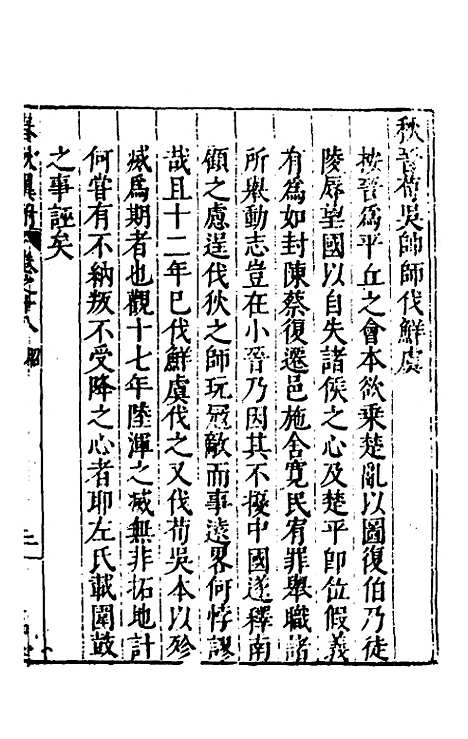 秋晉荀吳帥師伐鮮虞
按晉為平丘之會本欲乗楚亂以圖復伯乃徒
陵辱望國以自失諸侯之心及楚平即位假義
有為如封陳蔡復遷邑施舍寬民宥罪舉職諸
所舉動志豈在小晉乃因其不擾中國遂釋南
顧之慮逞伐狄之師玩冦敵而事遠畧何悖謬
哉且十二年已伐鮮虞伐之又伐荀吳本以殄
滅為期者也觀十七年陸渾之滅無非拓地計
何嘗有不納叛不受降之心者耶左氏載圍鼓
之事誣矣
春秋翼附 卷之十八 昭